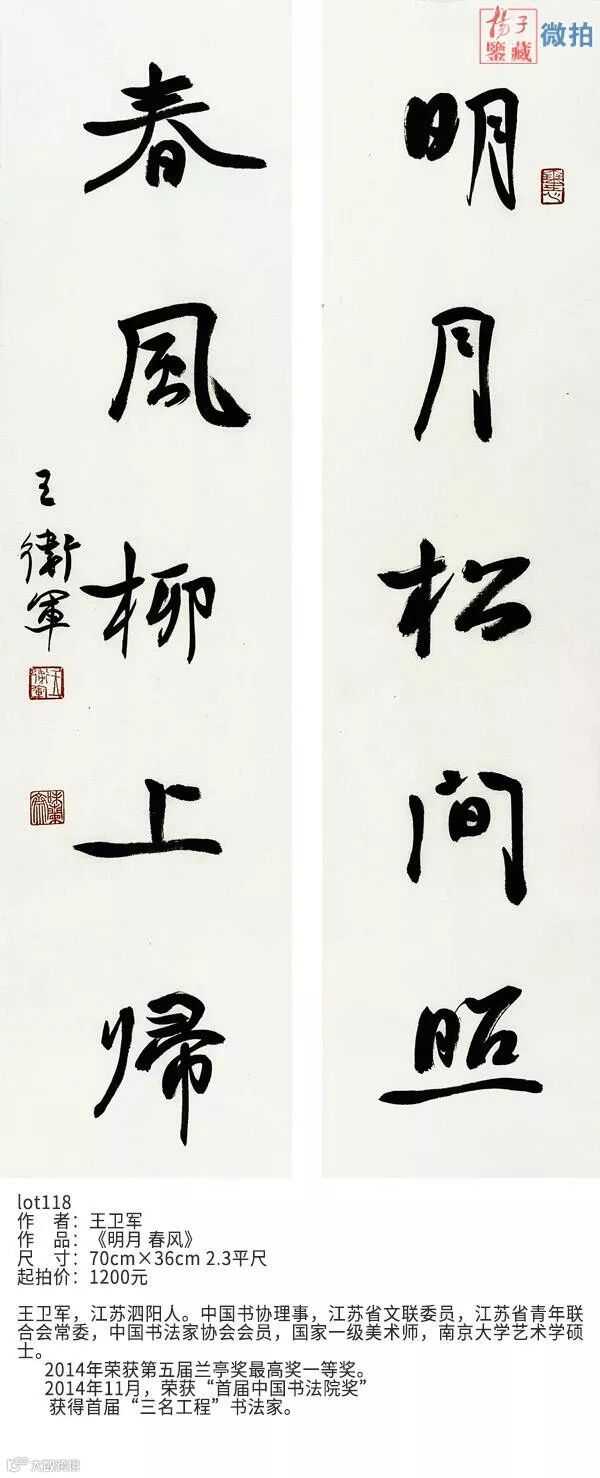 楊子
鑒藏
微拍
明月松间照
春風柳上歸
王衛軍
lot118
作 者：王卫军
作 品：《明月 春风》
尺 寸：70cm×36cm 2.3平尺
起拍价：1200元
王卫军，江苏泗阳人。中国书协理事，江苏省文联委员，江苏省青年联
合会常委，中国书法家协会会员，国家一级美术师，南京大学艺术学硕
士。
2014年荣获第五届兰亭奖最高奖一等奖。
2014年11月，荣获“首届中国书法院奖”
获得首届“三名工程”书法家。
大数跨境